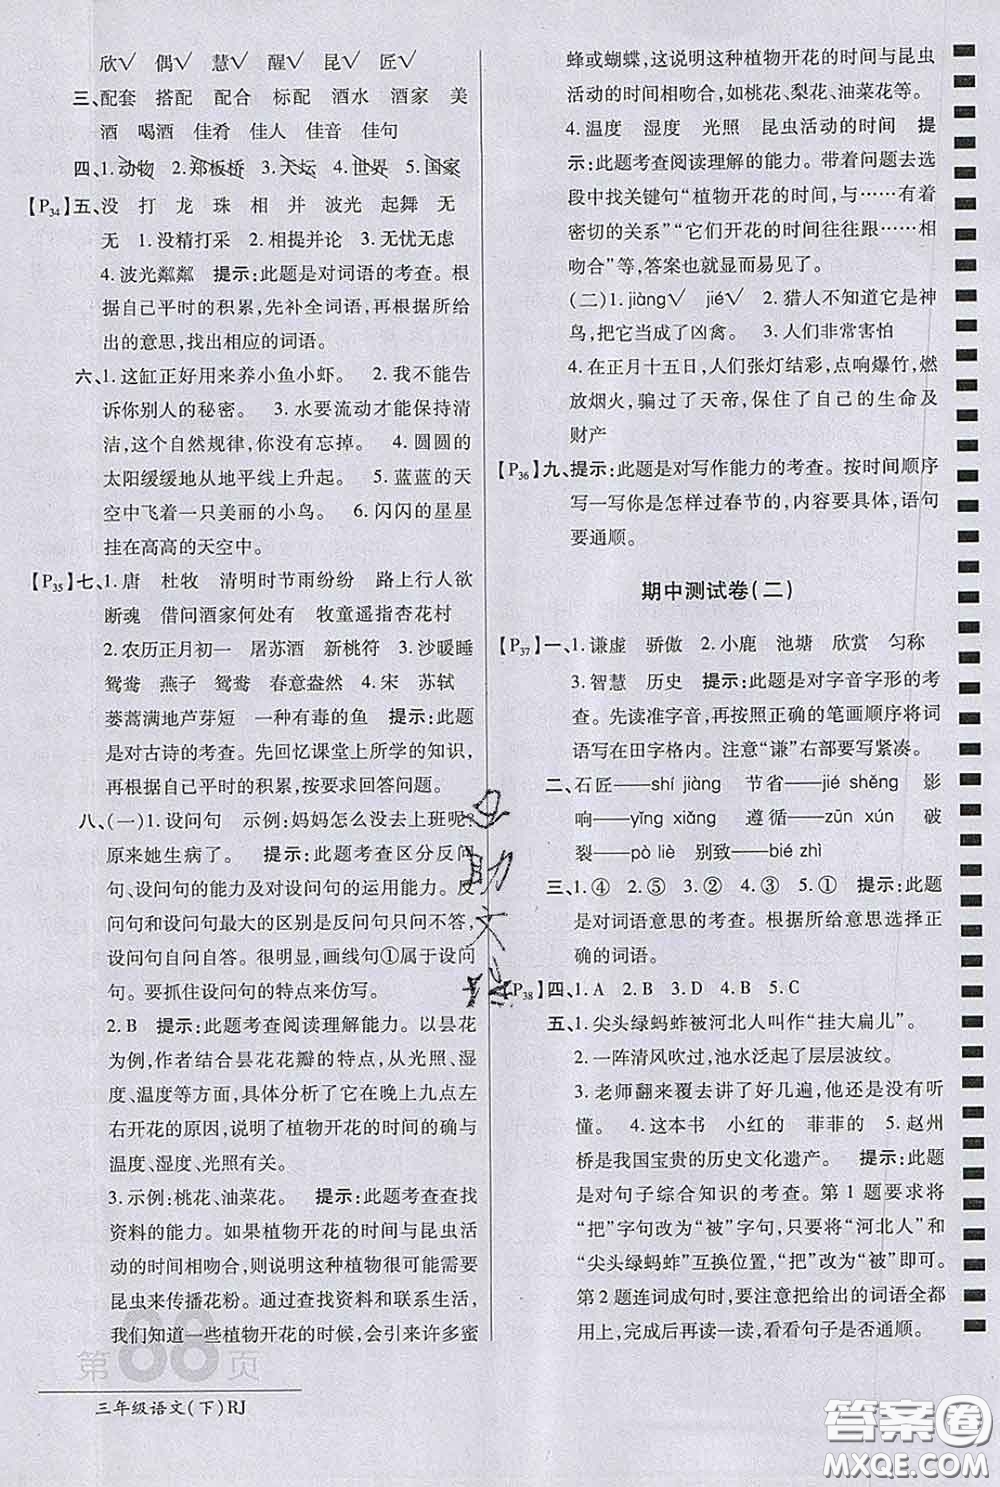 欣√　偶√　慧√　醒√　昆√　匠√
三、配套　搭配　配合　标配　酒水　酒家　美
酒　喝酒　佳肴　佳人　佳音　佳句
四、1.动物　2.郑板桥　3.天坛　4.世界　5.国家
【P34】五、没　打　龙　珠　相　并　波光　起舞　无
无　1.没精打采　2.相提并论　3.无忧无虑
4.波光粼粼　提示:此题是对词语的考查。根
据自己平时的积累,先补全词语,再根据所给
出的意思,找出相应的词语。
六、1.这缸正好用来养小鱼小虾。　2.我不能告
诉你别人的秘密。　3.水要流动才能保持清
洁,这个自然规律,你没有忘掉。　4.圆圆的
太阳缓缓地从地平线上升起。　5.蓝蓝的天
空中飞着一只美丽的小鸟。　6.闪闪的星星
挂在高高的天空中。
【P35】七、1.唐　杜牧　清明时节雨纷纷　路上行人欲
断魂　借问酒家何处有　牧童遥指杏花村
2.农历正月初一　屠苏酒　新桃符　3.沙暖睡
鸳鸯　燕子　鸳鸯　春意盎然　4.宋　苏轼
蒌蒿满地芦芽短　一种有毒的鱼　提示:此题
是对古诗的考查。先回忆课堂上所学的知识,
再根据自己平时的积累,按要求回答问题。
八、(一)1.设问句　示例:妈妈怎么没去上班呢?
原来她生病了。　提示:此题考查区分反问
句、设问句的能力及对设问句的运用能力。反
问句和设问句最大的区别是反问句只问不答,
设问句自问自答。很明显,画线句①是设问
句。要抓住设问句的特点来仿写。
2.B　提示:此题考查阅读理解能力。以昙花
为例,作者结合昙花花瓣的特点,从光照、湿
度、温度等方面,分析了它在晚上九点左
右开花的原因,说明了植物开花的时间的确与
温度、湿度、光照有关。
3.示例:桃花、油菜花。　提示:此题考查查找
资料的能力。如果植物开花的时间与昆虫活
动的时间相吻合,则说明这种植物很可能需要
昆虫来传播花粉。通过查找资料和联系生活,
我们知道一些植物开花的时候,会引来许多蜜
第88页
三年级语文(下)RJ
蜂或蝴蝶,这说明这种植物开花的时间与昆虫
活动的时间相吻合,如桃花、梨花、油菜花等。
4.温度　湿度　光照　昆虫活动的时间　提
示:此题考查阅读理解的能力。带着问题去选
段中找关键句“植物开花的时间,与……有着
密切的关系”“它们开花的时间往往跟……相
吻合”等,答案也就显而易见了。
(二)1.jiàng√　jié√　2.猎人不知道它是神
鸟,把它当成了凶禽。　3.人们非常害怕
4.在正月十五日,人们张灯结彩,点响爆竹,燃
放烟火,骗过了天帝,保住了自己的生命及
财产
【P36】九、提示:此题是对写作能力的考查。按时间顺序
写一写你是怎样过春节的,内容要具体,语句
要通顺。
期中测试卷(二)
【P37】一、1.谦虚　骄傲　2.小鹿　池塘　欣赏　匀称
3.智慧　历史　提示:此题是对字音字形的考
查。先读准字音,再按照正确的笔画顺序将词
语写在田字格内。注意“谦”右部要写紧凑。
二、石匠——shí jiàng　节省——jié shěng　影
响——yǐng xiǎng　遵循——zūn xún　破
裂——pò liè　别致——bié zhì
三、1.④　2.⑤　3.②　4.③　5.①　提示:此题
是对词语意思的考查。根据所给意思选择正
确的词语。
【P38】四、1.A　2.B　3.D　4.B　5.C
五、1.尖头绿蚂蚱被河北人叫作“挂大扁儿”。
2.一阵清风吹过,池水泛起了层层波纹。
3.老师翻来覆去讲了好几遍,他还是没有听
懂。　4.这本书　小红的　菲菲的　5.赵州
桥是我国宝贵的历史文化遗产。　提示:此题
是对句子综合知识的考查。第1题要求将
“把”字句改为“被”字句,只要将“河北人”和
“尖头绿蚂蚱”互换位置,“把”改为“被”即可。
第2题连词成句时,要注意把给出的词语全都
用上,完成后再读一读,看看句子是否通顺。
答案圈
MXQE.COM